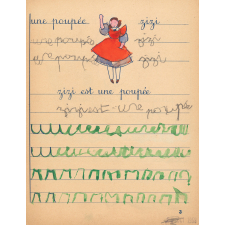 une poupée zizi
une poupée zizi
une poupée zizi
zizi est une poupée
zizi est une poupée